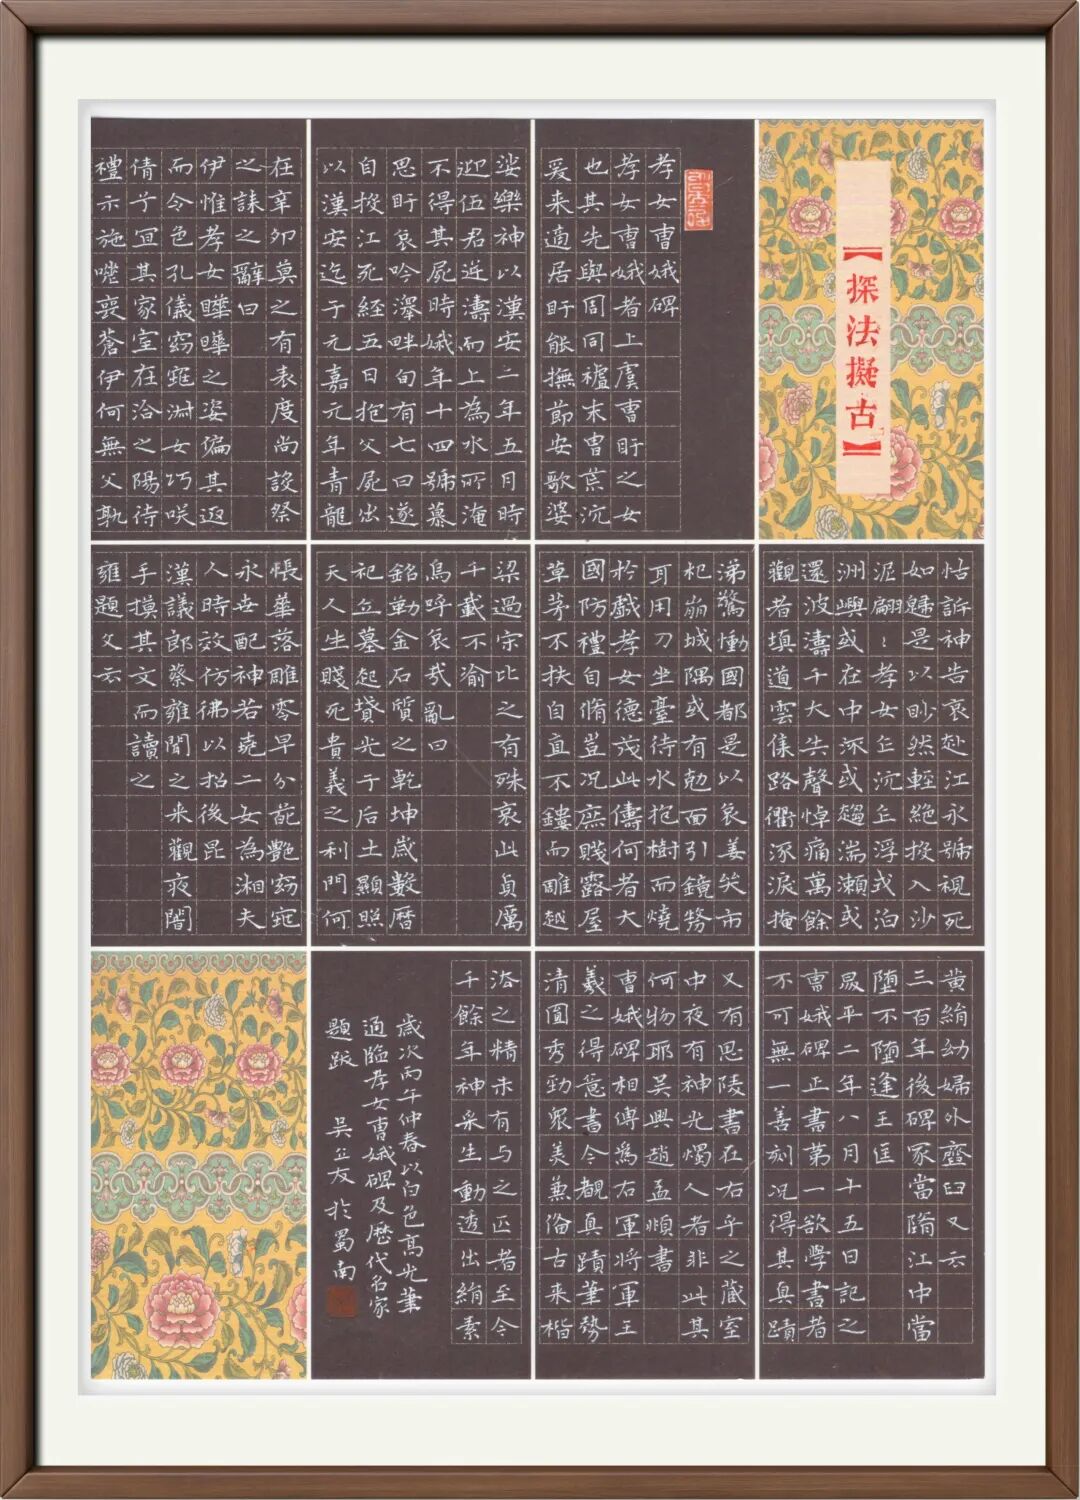 【探法擬古】
孝女曹娥碑
孝女曹娥者上虞曹盱之女
也其先與周同祖末冑荒沉
爰来適居盱能撫節安歌婆
娑樂神以漢安二年五月時
迎伍君逆濤而上為水所淹
不得其屍時娥年十四號慕
思盱哀吟澤畔旬有七日遂
自投江死經五日抱父屍出
以漢安迄于元嘉元年青龍
在辛卯莫之有表度尚設祭
之誄之辭曰
伊惟孝女曄曄之姿偏其返
而令色孔儀窈窕淑女巧咲
倩兮宜其家室在洽之陽待
禮未施嗟喪蒼伊何無父孰
怙訴神告哀赴江永號視死
如歸是以眇然輕絕投入沙
泥翩〻孝女乍沉乍浮或泊
洲嶼或在中流或趨湍瀨或
還波濤千夫失聲悼痛萬餘
觀者填道雲集路衢流淚掩
涕驚慟國都是以哀姜哭市
杞崩城隅或有剋面引鏡剺
耳用刀坐臺待水抱樹而燒
於戲孝女德茂此儔何者大
國防禮自脩豈况庶賤露屋
草茅不扶自直不鏤而雕越
梁過宋比之有殊哀此貞厲
千載不渝
嗚呼哀哉亂曰
銘勒金石質之乾坤歲數曆
祀立墓起墳光于后土顯照
天人生賤死貴義之利門何
悵華落雕零早分葩艷窈窕
永世配神若堯二女為湘夫
人時效仿佛以招後昆
漢議郎蔡雍聞之来觀夜闇
手摸其文而讀之
雍題文云
黄絹幼婦外齏臼又云
三百年後碑冢當墮江中當
墮不墮逢王匡
昇平二年八月十五日記之
曹娥碑正書第一欲學書者
不可無一善刻况得其真蹟
又有思陵書在右乎之藏室
中夜有神光燭人者非此其
何物耶吳興趙孟頫書
曹娥碑相傳爲右軍將軍王
羲之得意書今觀真蹟筆勢
清圓秀勁衆美兼俻古来楷
法之精未有与之匹者至今
千餘年神采生動透出絹素
歲次丙午仲春以白色高光筆
通臨孝女曹娥碑及歷代名家
題跋 吳立友於蜀南